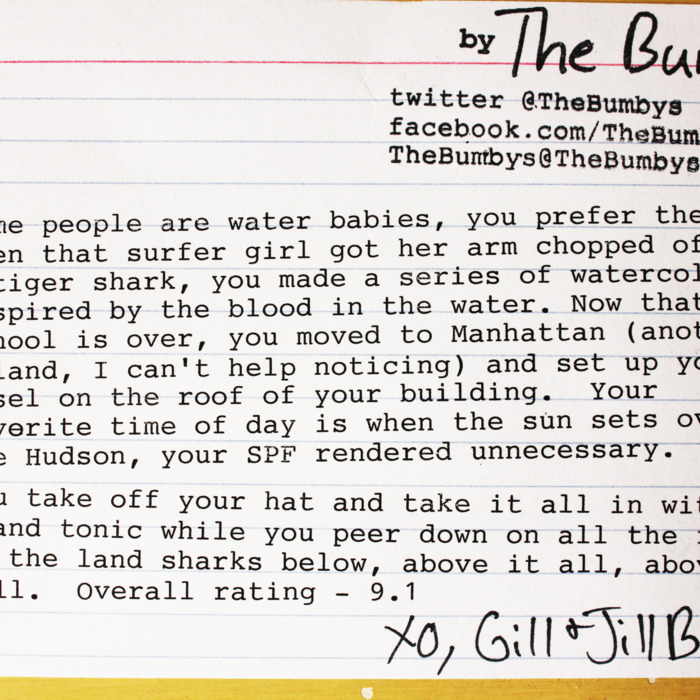 by The Bu
twitter @TheBumbys
facebook.com/TheBum
TheBumbys@TheBumbys
me people are water babies, you prefer the
en that surfer girl got her arm chopped of
tiger shark, you made a series of watercol
spired by the blood in the water. Now that
hool is over, you moved to Manhattan (anot
land, I can't help noticing) and set up yo
sel on the roof of your building.  Your
verite time of day is when the sun sets ov
e Hudson, your SPF rendered unnecessary.
u take off your hat and take it all in wit
and tonic while you peer down on all the
the land sharks below, above it all, abov
ll.  Overall rating - 9.1
xo, Gill + Jill B